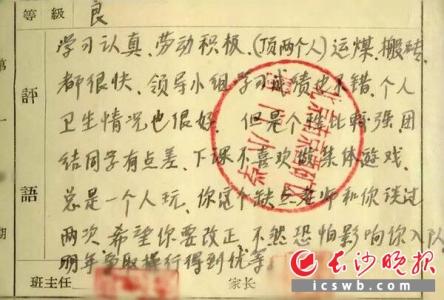 等級
良
第一
期
評
語
学习认真、劳动积极、(顶两个人)运煤、搬砖
都很快、领导小组学习成绩也不错、个人
卫生情况也很好、但是个性比较强、团
结同学有点差、下课不喜欢做集体游戏、
总是一个人玩、你这个缺点老师和你谈过
两次 希望你要改正、不然恐怕影响你入队
明年要取操行得到优等。
班主任
家长
小学
长沙晚报
icswb.com